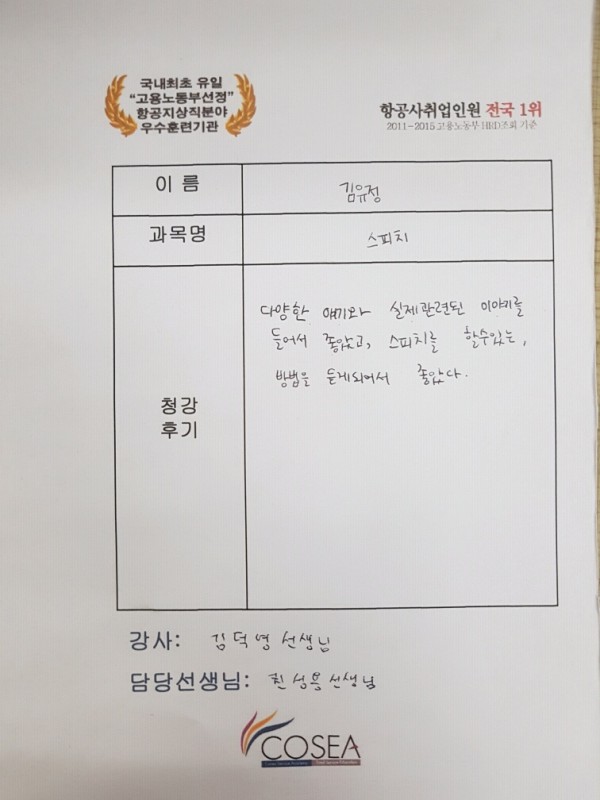 국내최초 유일
"고용노동부선정"
항공지상직분야
우수훈련기관
항공사취업인원 전국 1위
2011-2015 고용노동부 HRD조회 기준
이 름
김유정
과목명
스피치
청강
후기
다양한 얘기와 실제관련된 이야기를
들어서 좋았고, 스피치를 할수있는,
방법을 듣게되어서 좋았다.
강사: 김덕영선생님
담당선생님: 진성용선생님
COSEA